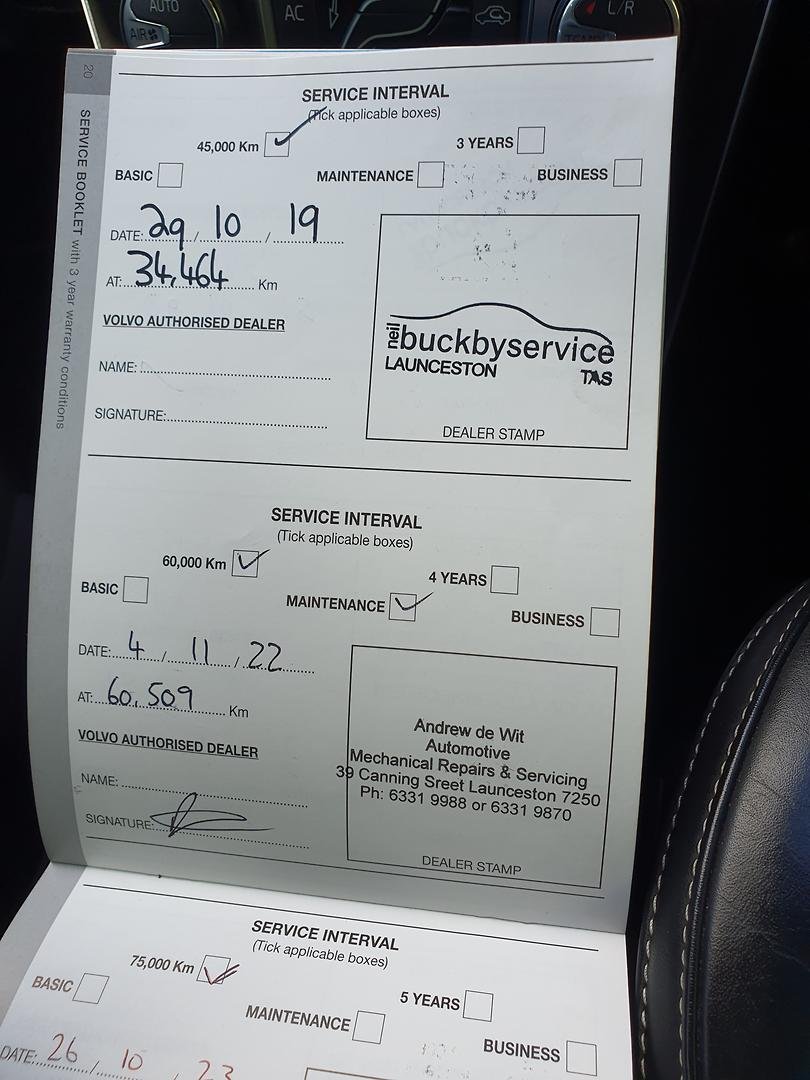 AUTO
AIR
AC
L/R
20
SERVICE BOOKLET with 3 year warranty conditions
SERVICE INTERVAL
(Tick applicable boxes)
45,000 Km
3 YEARS
BASIC
MAINTENANCE
BUSINESS
DATE: 29 / 10 / 19
AT: 34,464 Km
VOLVO AUTHORISED DEALER
NAME:
SIGNATURE:
neil buckbyservice
LAUNCESTON TAS
DEALER STAMP
SERVICE INTERVAL
(Tick applicable boxes)
60,000 Km
4 YEARS
BASIC
MAINTENANCE
BUSINESS
DATE: 4 / 11 / 22
AT: 60,509 Km
VOLVO AUTHORISED DEALER
NAME:
SIGNATURE:
Andrew de Wit
Automotive
Mechanical Repairs & Servicing
39 Canning Sreet Launceston 7250
Ph: 6331 9988 or 6331 9870
DEALER STAMP
SERVICE INTERVAL
(Tick applicable boxes)
75,000 Km
5 YEARS
BASIC
MAINTENANCE
BUSINESS
DATE: 26 / 10 / 23